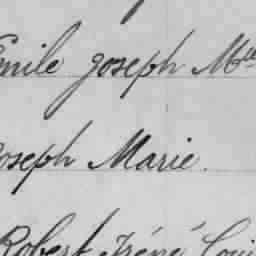 Emile Joseph Mlle
Joseph Marie.
Robert Iréné Loui